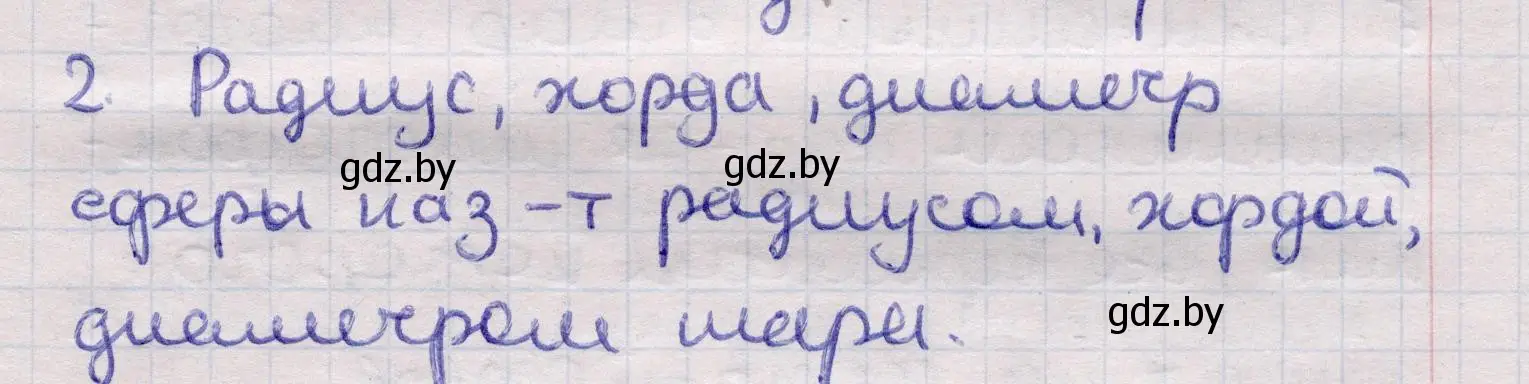 2. Радиус, хорда, диаметр
gdz.by gdz.by
сферы наз-т радиусом, хордой,
gdz.by
диаметром шара.